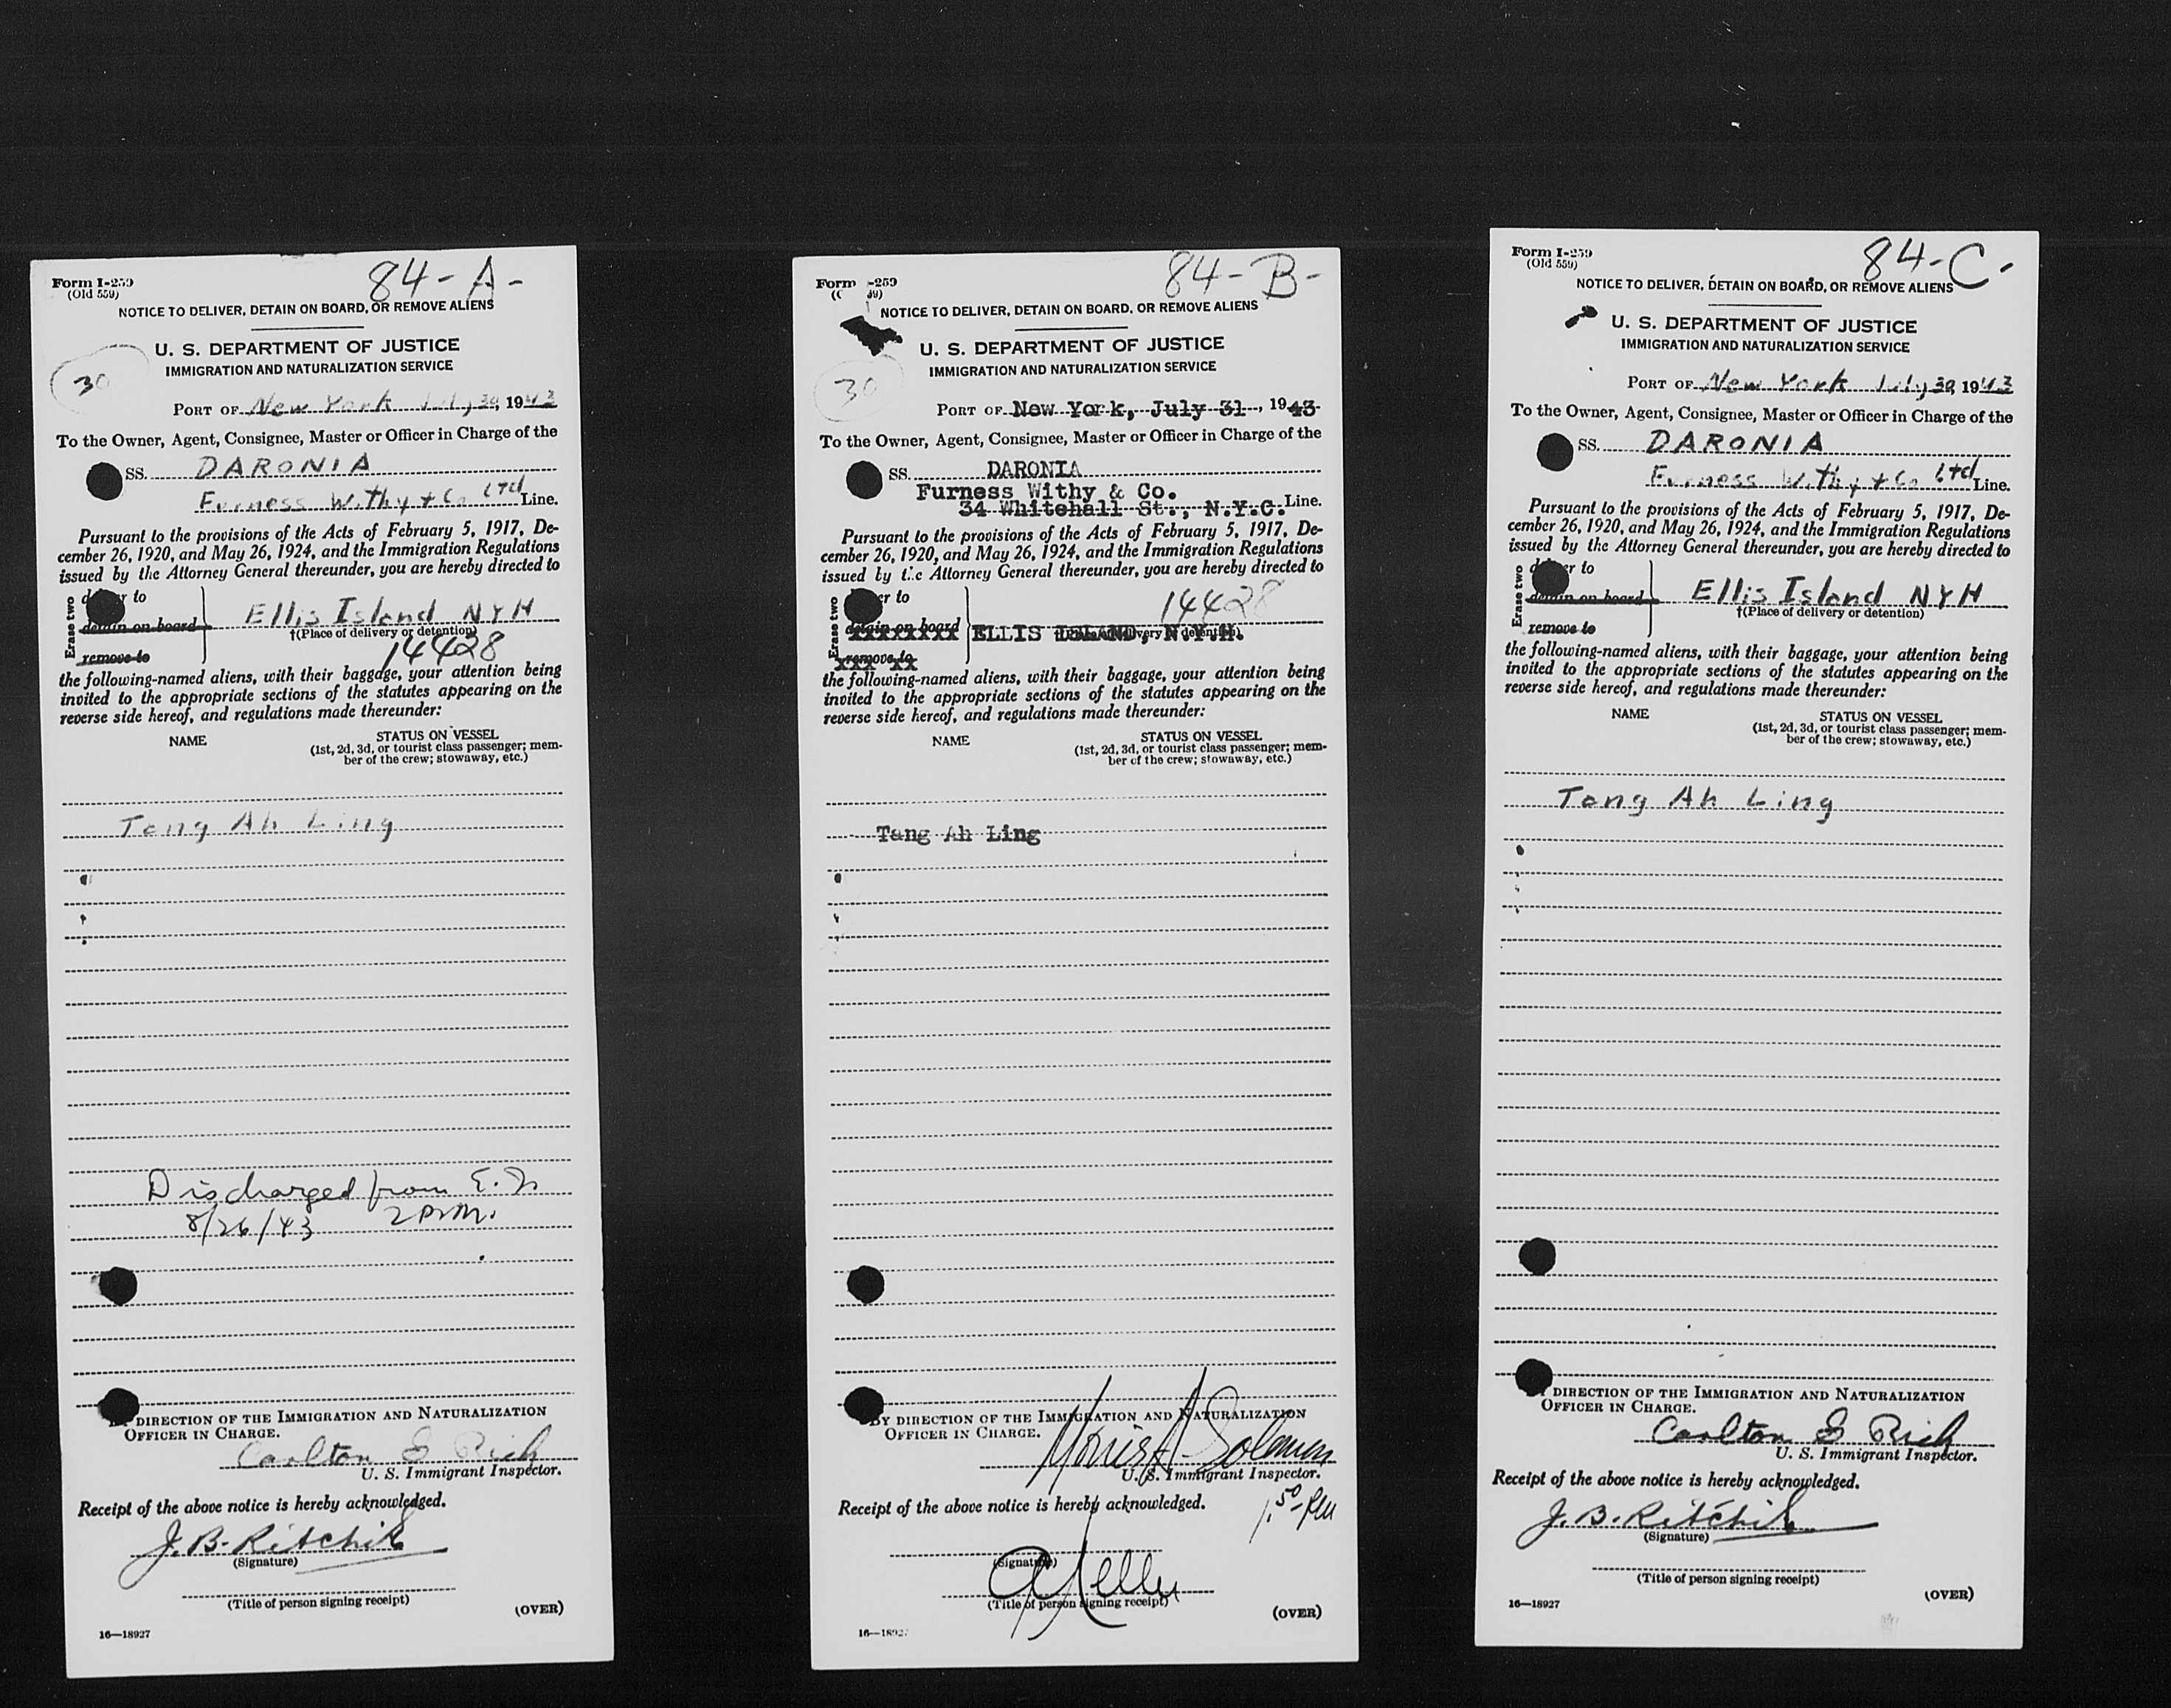 Form I-259
(Old 559)
84-A-
NOTICE TO DELIVER, DETAIN ON BOARD, OR REMOVE ALIENS
U. S. DEPARTMENT OF JUSTICE
IMMIGRATION AND NATURALIZATION SERVICE
30
PORT OF New York July 30, 1943
To the Owner, Agent, Consignee, Master or Officer in Charge of the
SS. DARONIA
Furness Withy + Co Ltd Line.
Pursuant to the provisions of the Acts of February 5, 1917, De-
cember 26, 1920, and May 26, 1924, and the Immigration Regulations
issued by the Attorney General thereunder, you are hereby directed to
Erase two
to
detain on board
remove to
Ellis Island NYH
†(Place of delivery or detention)
14428
the following-named aliens, with their baggage, your attention being
invited to the appropriate sections of the statutes appearing on the
reverse side hereof, and regulations made thereunder:
NAME
STATUS ON VESSEL
(1st, 2d, 3d, or tourist class passenger; mem-
ber of the crew; stowaway, etc.)
Tang Ah Ling
Discharged from E.I.
8/26/43 2 P.M.
BY DIRECTION OF THE IMMIGRATION AND NATURALIZATION
OFFICER IN CHARGE.
Carlton E Rich
U. S. Immigrant Inspector.
Receipt of the above notice is hereby acknowledged.
J. B. Ritchie
(Signature)
(Title of person signing receipt)
(OVER)
16—18927
Form -259
84-B-
NOTICE TO DELIVER, DETAIN ON BOARD, OR REMOVE ALIENS
U. S. DEPARTMENT OF JUSTICE
IMMIGRATION AND NATURALIZATION SERVICE
30
PORT OF New York, July 31, 1943
To the Owner, Agent, Consignee, Master or Officer in Charge of the
SS. DARONIA
Furness Withy & Co.
34 Whitehall St., N.Y.C. Line.
Pursuant to the provisions of the Acts of February 5, 1917, De-
cember 26, 1920, and May 26, 1924, and the Immigration Regulations
issued by the Attorney General thereunder, you are hereby directed to
Erase two
to
14428
detain on board
remove to
ELLIS ISLAND, N.Y.H.
the following-named aliens, with their baggage, your attention being
invited to the appropriate sections of the statutes appearing on the
reverse side hereof, and regulations made thereunder:
NAME
STATUS ON VESSEL
(1st, 2d, 3d, or tourist class passenger; mem-
ber of the crew; stowaway, etc.)
Tang Ah Ling
BY DIRECTION OF THE IMMIGRATION AND NATURALIZATION
OFFICER IN CHARGE.
Morris A. Solomon
U. S. Immigrant Inspector.
Receipt of the above notice is hereby acknowledged.
(Signature)
(Title of person signing receipt)
(OVER)
Form I-259
(Old 559)
84-C-
NOTICE TO DELIVER, DETAIN ON BOARD, OR REMOVE ALIENS
U. S. DEPARTMENT OF JUSTICE
IMMIGRATION AND NATURALIZATION SERVICE
PORT OF New York July 30, 1943
To the Owner, Agent, Consignee, Master or Officer in Charge of the
SS. DARONIA
Furness Withy + Co Ltd Line.
Pursuant to the provisions of the Acts of February 5, 1917, De-
cember 26, 1920, and May 26, 1924, and the Immigration Regulations
issued by the Attorney General thereunder, you are hereby directed to
Erase two
to
detain on board
remove to
Ellis Island NYH
†(Place of delivery or detention)
the following-named aliens, with their baggage, your attention being
invited to the appropriate sections of the statutes appearing on the
reverse side hereof, and regulations made thereunder:
NAME
STATUS ON VESSEL
(1st, 2d, 3d, or tourist class passenger; mem-
ber of the crew; stowaway, etc.)
Tang Ah Ling
BY DIRECTION OF THE IMMIGRATION AND NATURALIZATION
OFFICER IN CHARGE.
Carlton E Rich
U. S. Immigrant Inspector.
Receipt of the above notice is hereby acknowledged.
J. B. Ritchie
(Signature)
(Title of person signing receipt)
(OVER)
16—18927